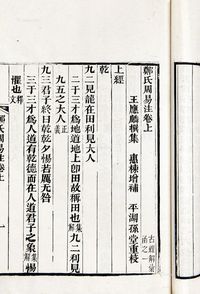 鄭氏周易注卷上
古經解彙函之一
王應麟撰集 惠棟增補 平湖孫堂重校
上經
乾
九二見龍在田利見大人
二于三才爲地道地上卽田故稱田也集解九二利見
九五之大人正義
九三君子終日乾乾夕惕若厲无咎
三于三才爲人道有乾德而在人道君子之象集解惕
懼也釋文
鄭氏周易注卷上 一